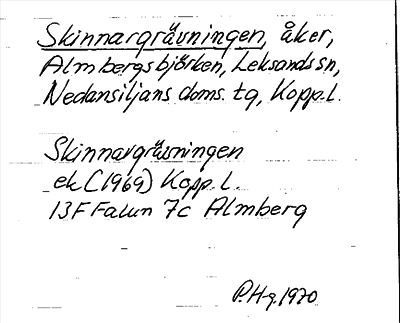 Skinnargrävningen, åker,
Almbergsbjörken, Leksands sn,
Nedansiljans doms. tg, Kopp.l.
Skinnargräsningen
ek (1969) Kopp. l.
13F Falun 7c Almberg
P.H-g. 1970